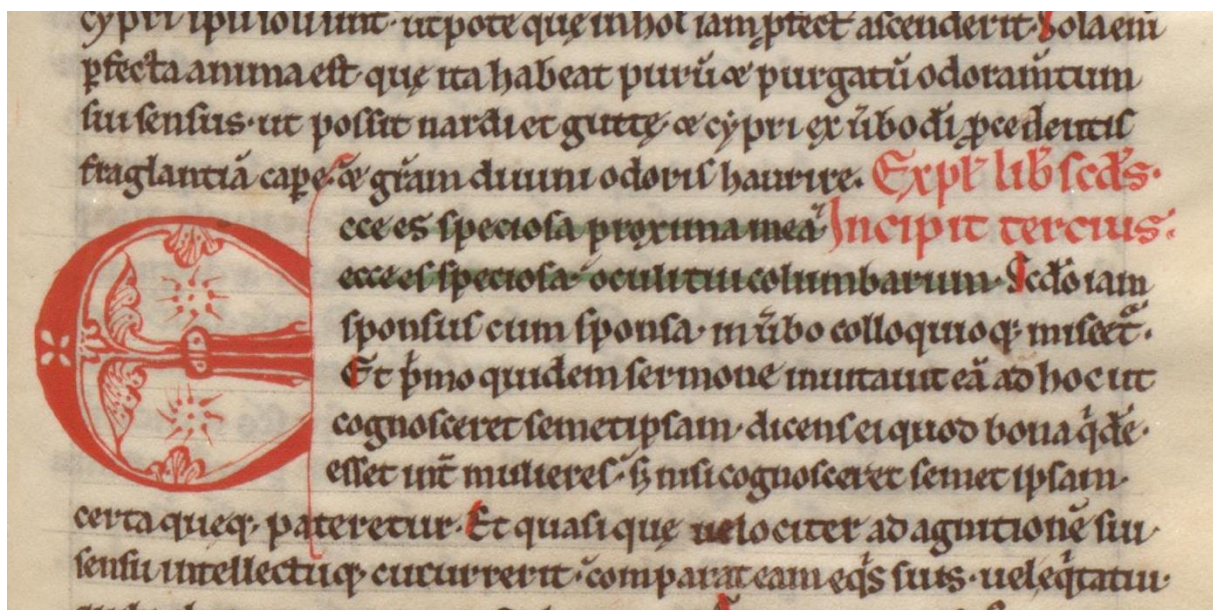 cypri ipsi soli sint· utpote quę in hoc iam ꝑfecte ascenderit· Sola eni
ꝑfecta anima est· quę ita habeat purū & purgatū odoram̄tum
sui sensus· ut possit nardi et guttę & cypri ex ūbo di ꝓcedentis
fraglantiā caꝑe· & gr̄am diuini odoris haurire. Expl̄ lib̄ scd̄s·
Ecce es speciosa proxima mea· Incipit tercius·
ecce es speciosa· oculi tui columbarum· Scd̄o iam
sponsus cum sponsa· in ūbo colloquioq; misceet̄·
Et p̄mo quidem sermone inuitauit eā ad hoc ut
cognosceret semetipsam· dicens ei quod bona qͥdē·
esset int̄ mulieres· s; nisi cognosceret semet ipsam·
certa queq; pateretur· Et quasi quę uelociter ad agnitionē sui·
sensu intellectuq; cucurrerit· comparat eam eqͥs suis· uel eqͥtatui·